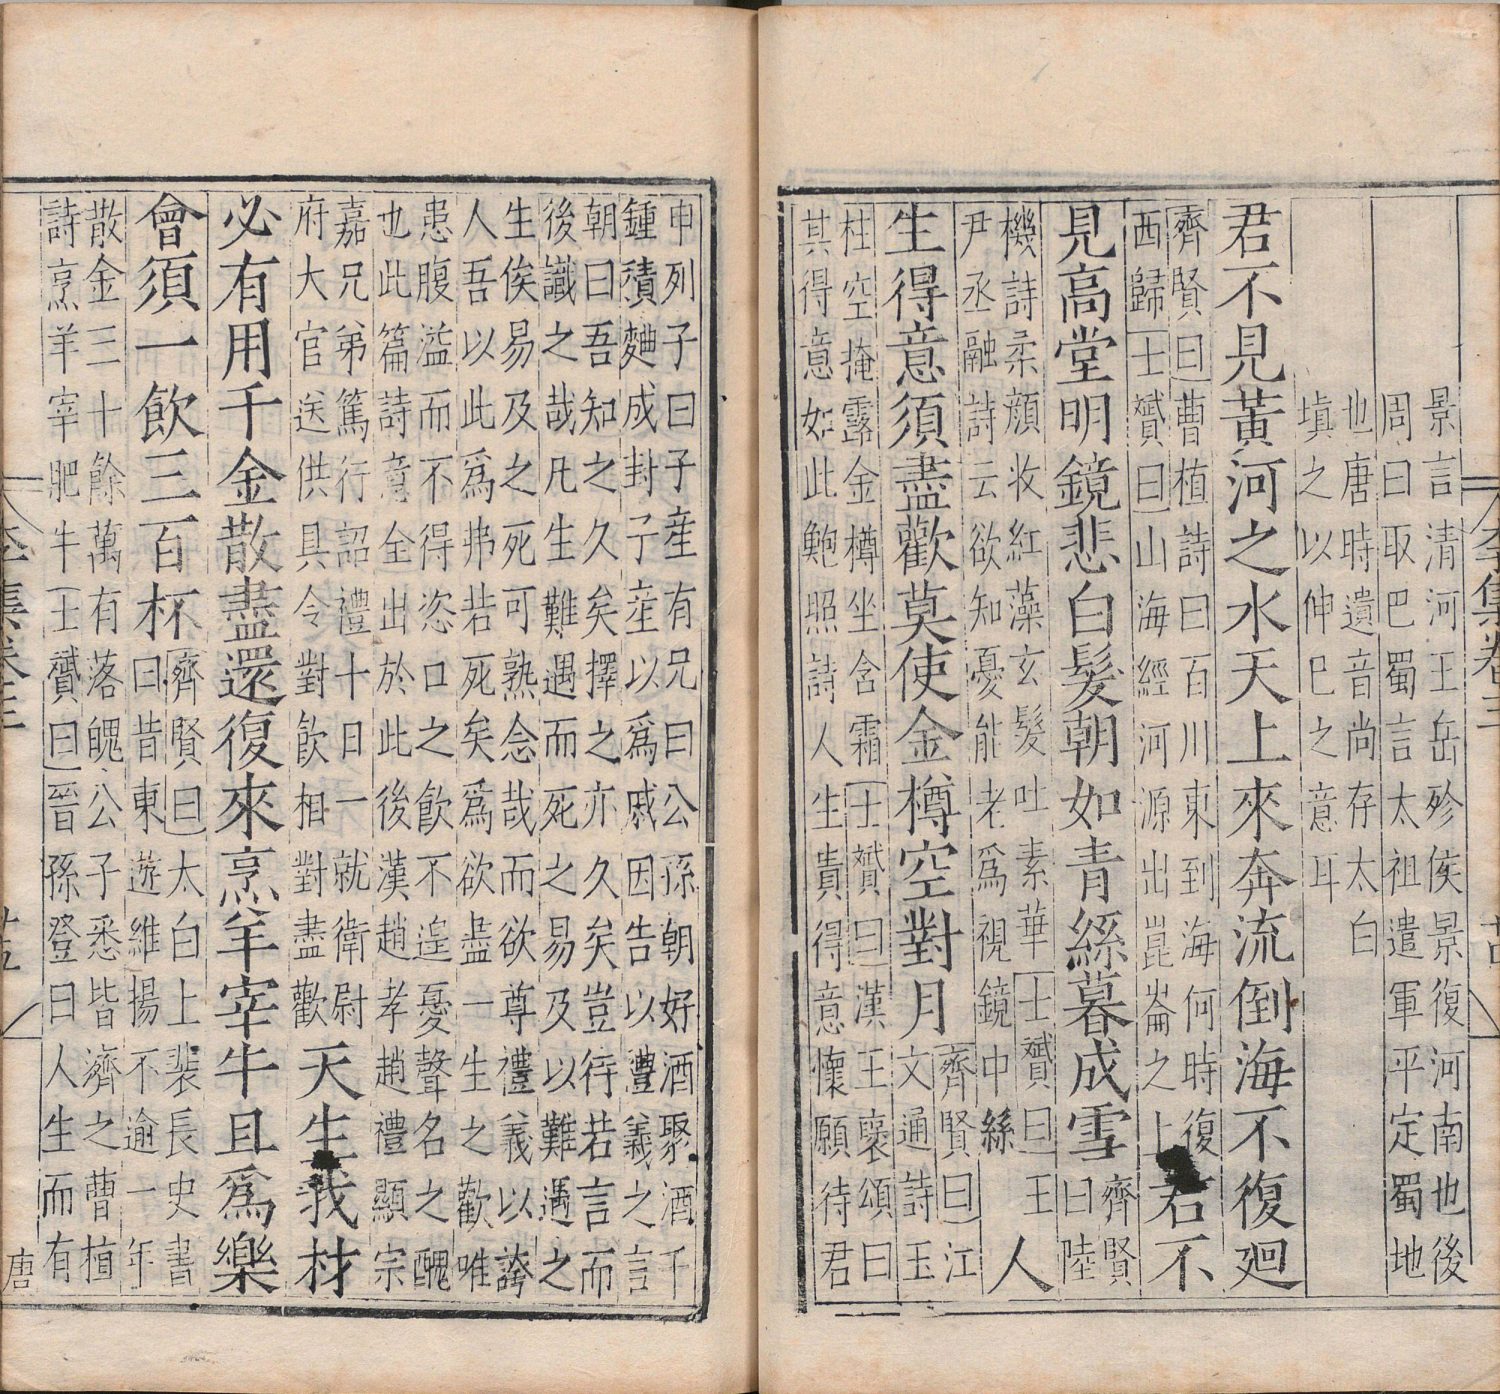 李集卷三
廿四
景言清河王岳殄侯景復河南也後
周曰取巴蜀言太祖遣軍平定蜀地
也唐時遺音尚存太白
塡之以伸巳之意耳
君不見黃河之水天上來奔流倒海不復廻
齊賢曰曹植詩曰百川東到海何時復
西歸士贇曰山海經河源出崑崙之上
君不
見高堂明鏡悲白髮朝如青絲暮成雪
齊賢
曰陸
機詩柔顔收紅藻玄髮吐素華士贇曰王
尹丞融詩云欲知憂能老爲視鏡中絲
人
生得意須盡歡莫使金樽空對月
齊賢曰江
文通詩玉
柱空掩露金樽坐含霜士贇曰漢王襃頌曰
其得意如此鮑照詩人生貴得意懷願待君
申列子曰子産有兄曰公孫朝好酒聚酒千
鍾積麯成封子産以爲戚因告以灃義之言
朝曰吾知之久矣擇之亦久矣豈待若言而
後識之哉凡生難遇而死之易及以難遇之
生俟易及之死可熟念哉而欲尊禮義以誇
人吾以此爲弗若死矣爲欲盡一生之歡唯
患腹溢而不得恣口之飮不遑憂聲名之醜
也此篇詩意全出於此後漢趙孝趙禮顯宗
嘉兄弟篤行詔禮十日一就衛尉
府大官送供具令對飮相對盡歡
天生我材
必有用千金散盡還復來烹羊宰牛且爲樂
會須一飮三百杯
齊賢曰太白上裴長史書
曰昔東遊維揚不逾一年
散金三十餘萬有落魄公子悉皆濟之曹植
詩烹羊宰肥牛士贇曰晉孫登曰人生而有
李集卷三
廿五
唐